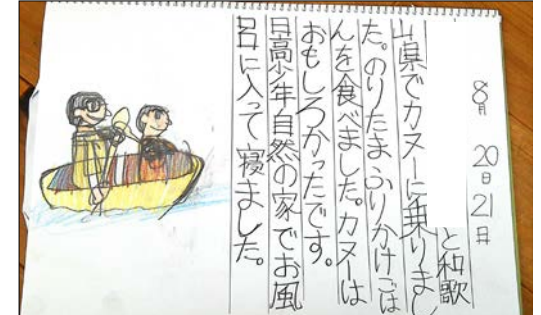 8月 20日 21日
と和歌
山県でカヌーに乗りまし
た。のりたまふりかけごは
んを食べました。カヌーは
おもしろかったです。
日高少年自然の家でお風
呂に入って寝ました。